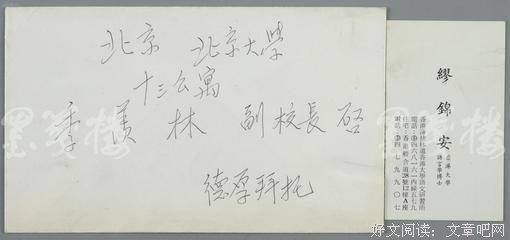 北京 北京大學
十三公寓
季羨林 副校長 啓
德厚拜托
繆錦安
香港大學
語言學博士
墨笺楼
好文阅读：文章吧网